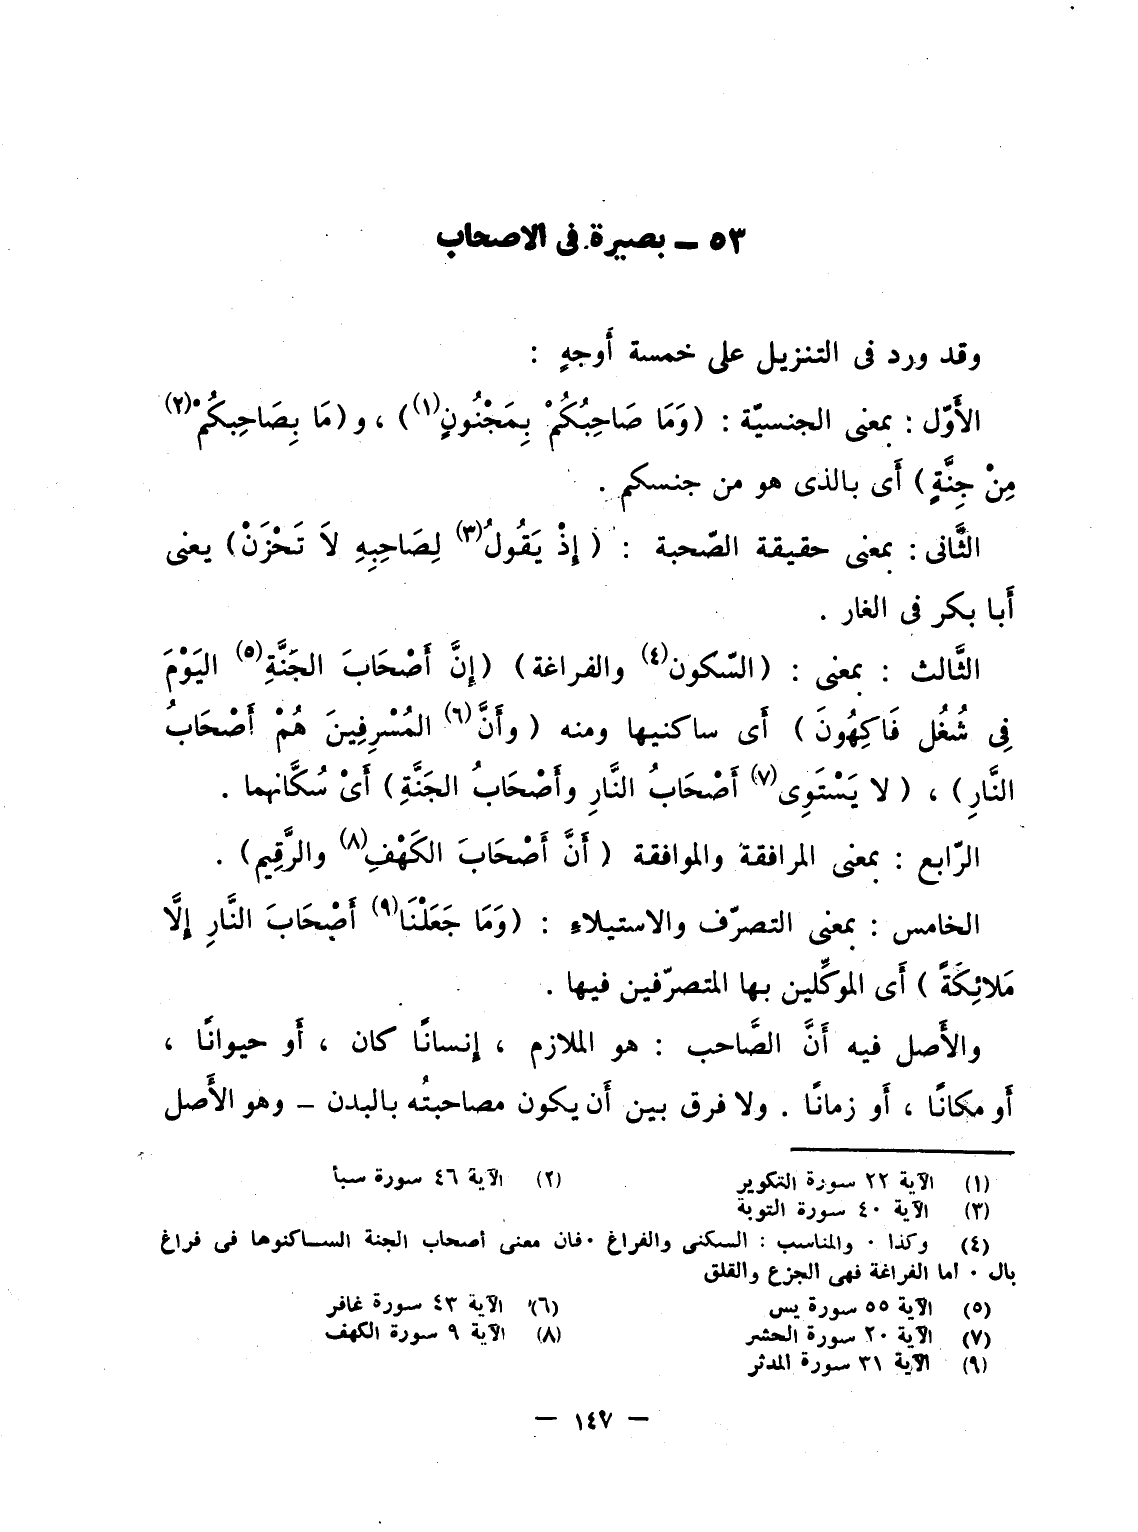 ٥٣ – بصيرة فى الاصحاب
وقد ورد فى التنزيل على خمسة أَوجهٍ :
الأَوّل : بمعنى الجنسيّة : (وَمَا صَاحِبُكُمْ بِمَجْنُونٍ(١)) ، و(مَا بِصَاحِبِكُمْ(٢)
مِنْ جِنَّةٍ) أَى بالذى هو من جنسكم .
الثَّانى : بمعنى حقيقة الصّحبة : (إِذْ يَقُولُ(٣) لِصَاحِبِهِ لاَ تَحْزَنْ) يعنى
أَبا بكر فى الغار .
الثَّالث : بمعنى : (السّكون(٤) والفراغة) (إِنَّ أَصْحَابَ الجَنَّةِ(٥) اليَوْمَ
فِى شُغُل فَاكِهُونَ) أَى ساكنيها ومنه (وأَنَّ(٦) المُسْرِفِينَ هُمْ أَصْحَابُ
النَّارِ) ، (لا يَسْتَوِى(٧) أَصْحَابُ النَّارِ وأَصْحَابُ الجَنَّةِ) أَىْ سُكَّانهما .
الرّابع : بمعنى المرافقة والموافقة (أَنَّ أَصْحَابَ الكَهْفِ(٨) والرَّقِيم) .
الخامس : بمعنى التصرّف والاستيلاءِ : (وَمَا جَعَلْنَا(٩) أَصْحَابَ النَّارِ إِلَّا
مَلائِكَةً) أَى الموكِّلين بها المتصرّفين فيها .
والأَصل فيه أَنَّ الصَّاحب : هو الملازم ، إِنسانًا كان ، أَو حيوانًا ،
أَو مكانًا ، أَو زمانًا . ولا فرق بين أَن يكون مصاحبتُه بالبدن – وهو الأَصل
(١) الآية ٢٢ سورة التكوير (٢) الآية ٤٦ سورة سبأ
(٣) الآية ٤٠ سورة التوبة
(٤) وكذا ٠ والمناسب : السكنى والفراغ ٠ فان معنى أصحاب الجنة الساكنوها فى فراغ
بال ٠ أما الفراغة فهى الجزع والقلق
(٥) الآية ٥٥ سورة يس (٦) الآية ٤٣ سورة غافر
(٧) الآية ٢٠ سورة الحشر (٨) الآية ٩ سورة الكهف
(٩) الآية ٣١ سورة المدثر
– ١٤٧ –